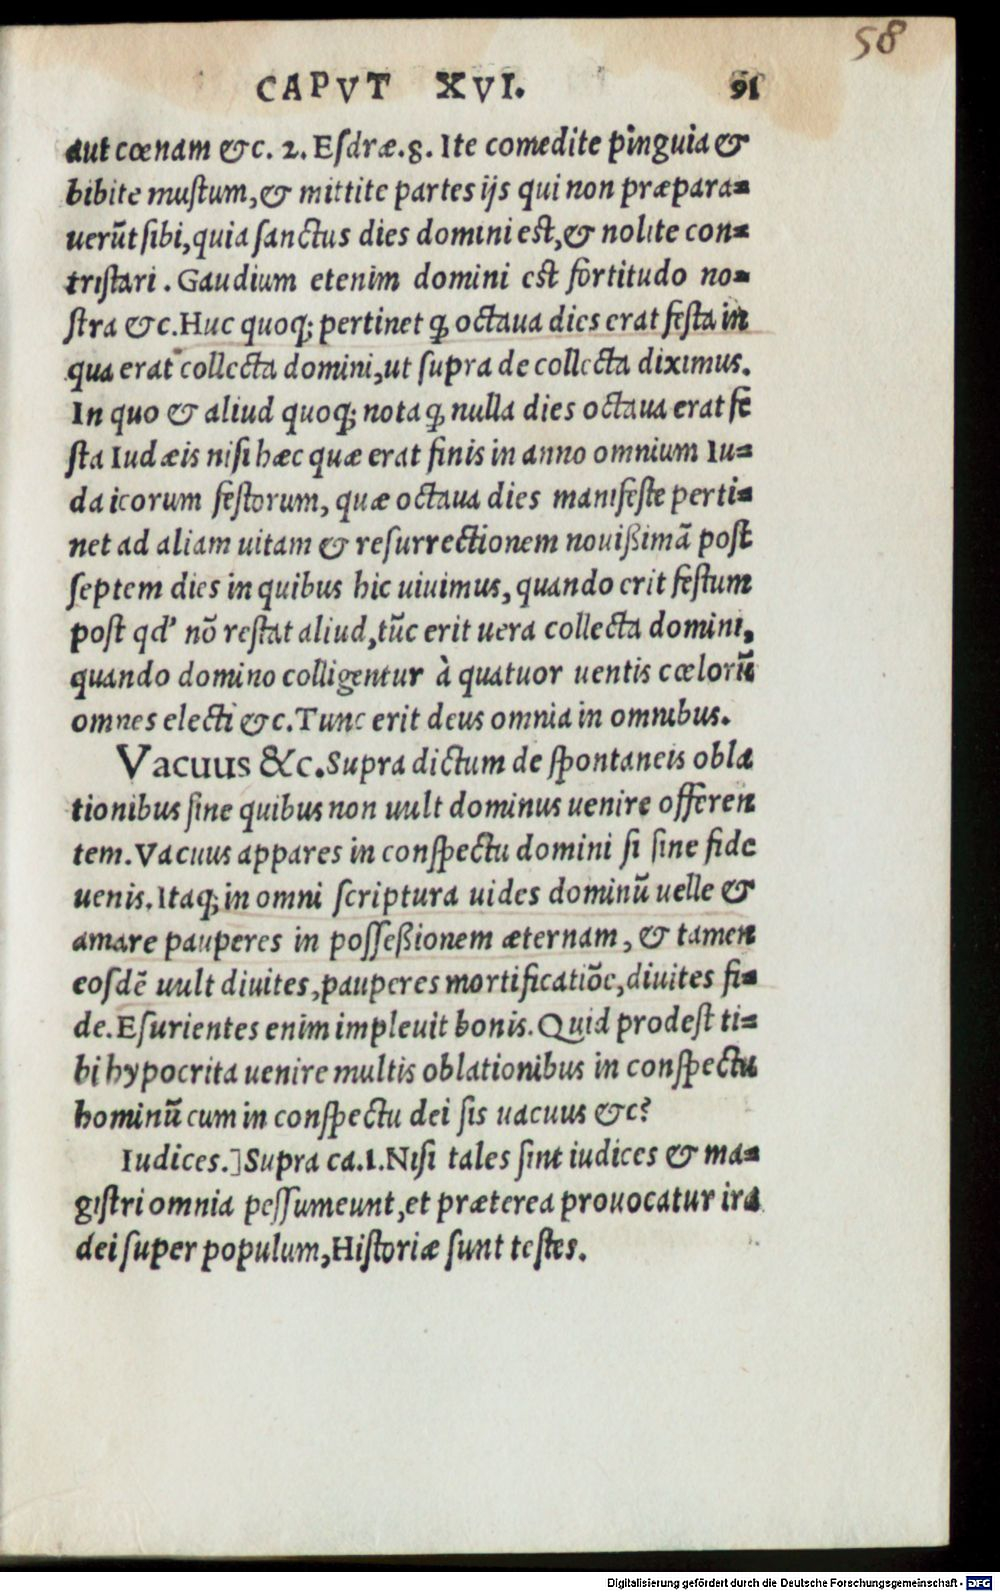 58
CAPVT XVI. 91
aut cœnam &c. 2. Eſdræ.8. Ite comedite pinguia &
bibite muſtum,& mittite partes ijs qui non præpara-
uerūt ſibi,quia ſanctus dies domini eſt,& nolite con-
triſtari . Gaudium etenim domini eſt fortitudo no-
ſtra &c.Huc quoq; pertinet ꝙ octaua dies erat feſta in
qua erat collecta domini,ut ſupra de collecta diximus.
In quo & aliud quoq; nota ꝙ nulla dies octaua erat fe
ſta Iudæis niſi hæc quæ erat finis in anno omnium Iu-
daicorum feſtorum, quæ octaua dies manifeſte perti-
net ad aliam uitam & reſurrectionem nouißimā poſt
ſeptem dies in quibus hic uiuimus, quando erit feſtum
poſt qd' nō reſtat aliud,tūc erit uera collecta domini,
quando domino colligentur à quatuor uentis cœlorū
omnes electi &c.Tunc erit deus omnia in omnibus.
Vacuus &c.Supra dictum de ſpontaneis obla
tionibus ſine quibus non uult dominus uenire offeren
tem.Vacuus appares in conſpectu domini ſi ſine fide
uenis.Itaq; in omni ſcriptura uides dominū uelle &
amare pauperes in poſſeßionem æternam, & tamen
eoſdē uult diuites,pauperes mortificatiōe,diuites fi-
de.Eſurientes enim impleuit bonis.Quid prodeſt ti-
bi hypocrita uenire multis oblationibus in conſpectu
hominū cum in conſpectu dei ſis uacuus &c?
Iudices.]Supra ca.1.Niſi tales ſint iudices & ma-
giſtri omnia peſſumeunt,et præterea prouocatur ira
dei ſuper populum,Hiſtoriæ ſunt teſtes.
Digitalisierung gefördert durch die Deutsche Forschungsgemeinschaft - DFG